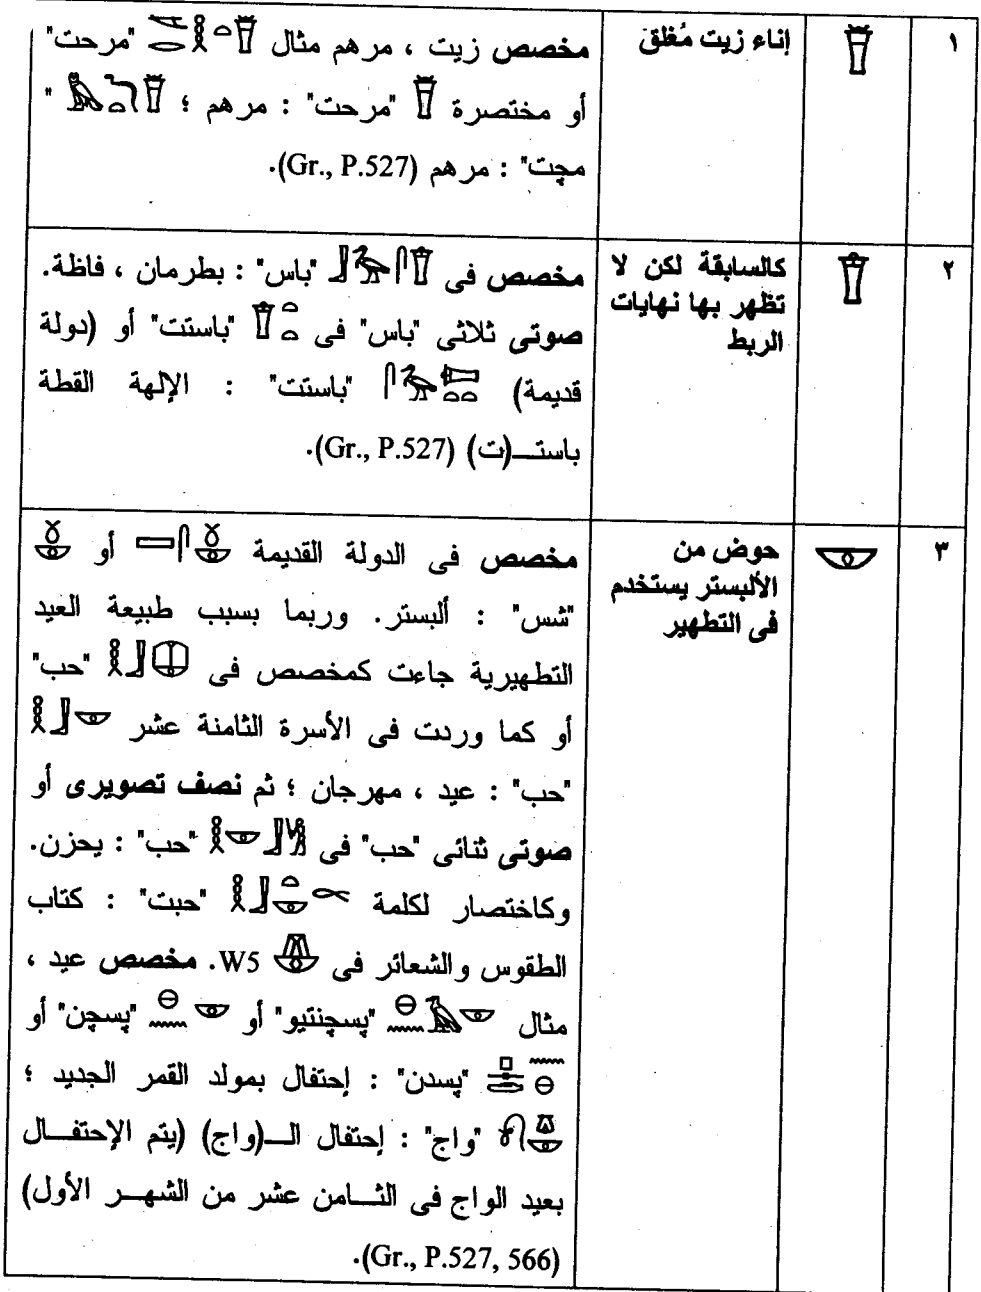 ١
إناء زيت مُغلق
مخصص زيت ، مرهم مثال "مرحت"
أو مختصرة "مرحت" : مرهم ؛ "
مچت" : مرهم (Gr., P.527).
٢
كالسابقة لكن لا
تظهر بها نهايات
الربط
مخصص فى "باس" : بطرمان ، فاظة.
صوتى ثلاثى "باس" فى "باستت" أو (دولة
قديمة) "باستت" : الإلهة القطة
باستــ(ت) (Gr., P.527).
٣
حوض من
الألبستر يستخدم
فى التطهير
مخصص فى الدولة القديمة أو
"شس" : ألبستر. وربما بسبب طبيعة العيد
التطهيرية جاءت كمخصص فى "حب"
أو كما وردت فى الأسرة الثامنة عشر
"حب" : عيد ، مهرجان ؛ ثم نصف تصويرى أو
صوتى ثنائى "حب" فى "حب" : يحزن.
وكاختصار لكلمة "حبت" : كتاب
الطقوس والشعائر فى W5. مخصص عيد ،
مثال "پسچنتيو" أو "پسچن" أو
"پسدن" : إحتفال بمولد القمر الجديد ؛
"واج" : إحتفال الــ(واج) (يتم الإحتفــال
بعيد الواج فى الثــامن عشر من الشهــر الأول)
(Gr., P.527, 566).